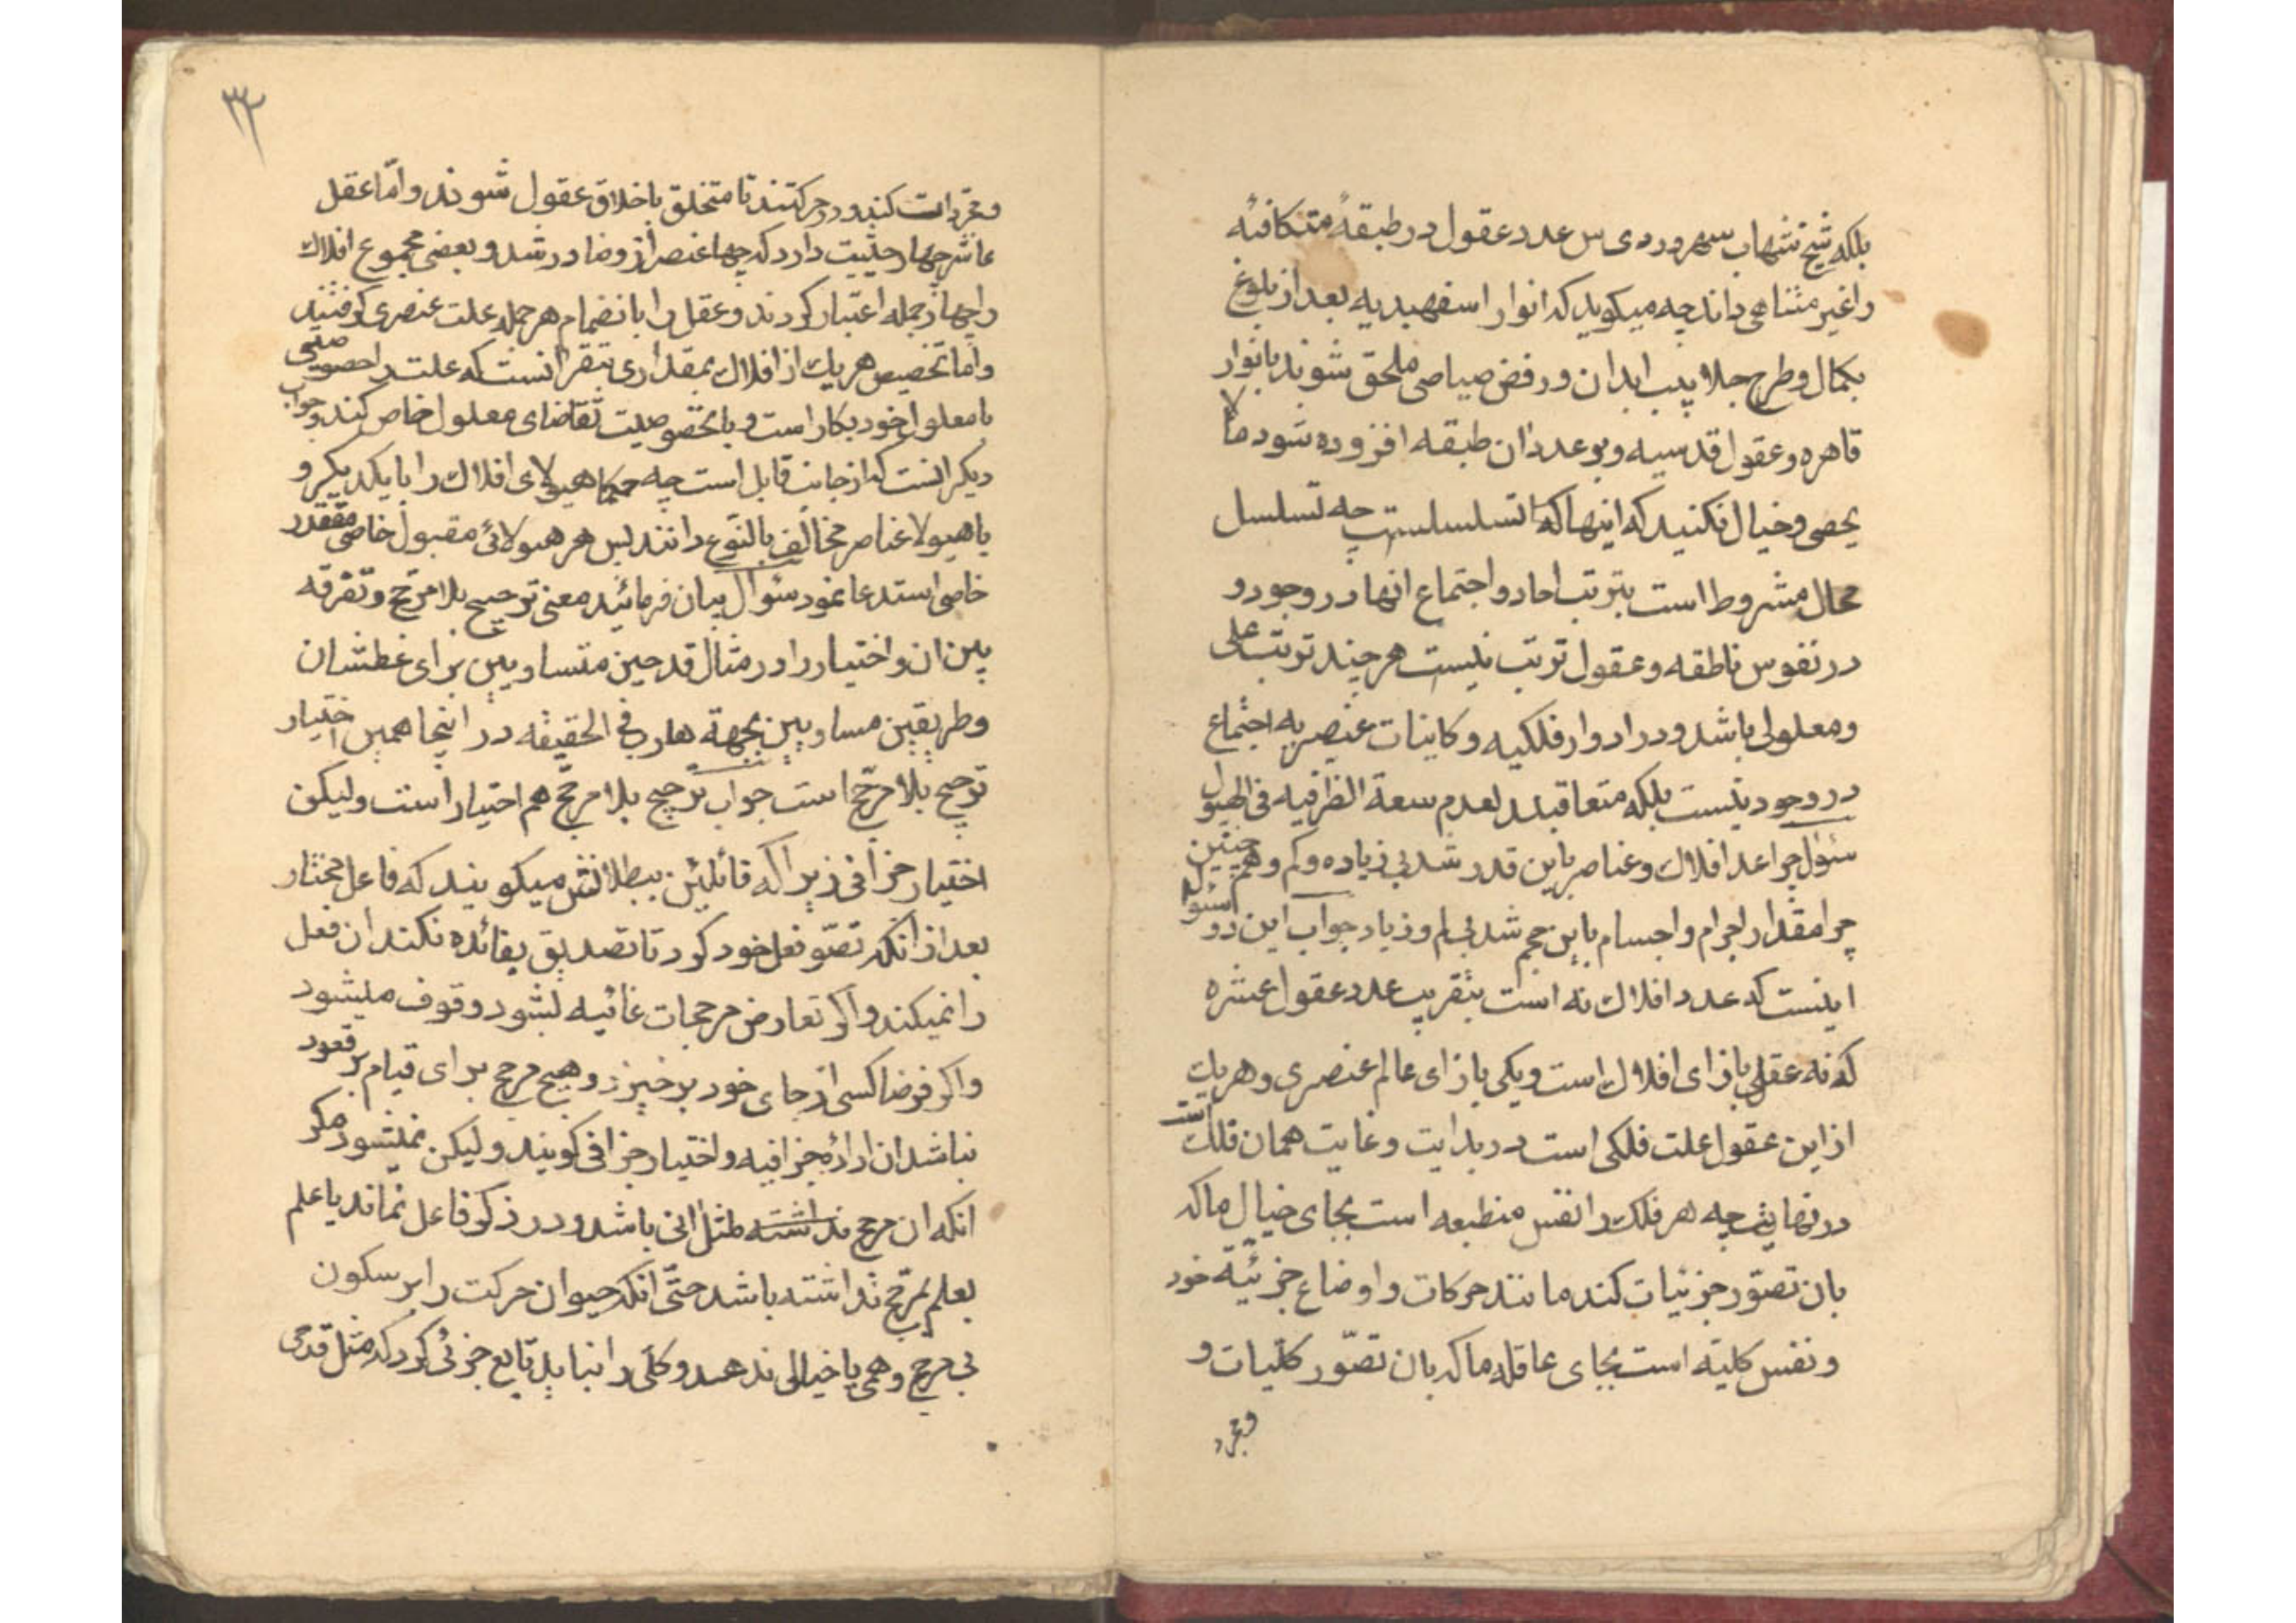 بلکه شیخ شهاب سهروردی س عدد عقول در طبقهٔ متکافئه
را غیر متناهی داند چه میکوید که انوار اسفهبدیه بعد از بلوغ
بکمال و طرح جلابیب ابدان و رفض صیاصی ملحق شوند بانوار
قاهره و عقول قدسیه و بر عدد ان طبقه افزوده شود ما لا
یحصی و خیال نکنید که اینها که تسلسلست چه تسلسل
محال مشروط است بترتب احاد و اجتماع انها در وجود و
در نفوس ناطقه و عقول ترتب نیست هر چند ترتب علی
و معلولی باشد و در ادوار فلکیه و کاینات عنصریه اجتماع
در وجود نیست بلکه متعاقبند لعدم سعة الظرفیه فی الهیولی
سئوال چرا عدد افلاک و عناصر باین قدر شد بی زیاده و کم و همچنین
چرا مقدار اجرام و اجسام باین حجم شد بی کم و زیاد جواب این دو سئوال
اینست که عدد افلاک نه است بتقریب عدد عقول عشره
که نه عقل بازای افلاک است و یکی بازای عالم عنصری و هر یک
از این عقول علت فلکی است در بدایت و غایت همان فلک است
در نهایت چه هر فلک را نفس منطبعه است بجای خیال ما که
بان تصوّر جزئیات کند مانند حرکات و اوضاع جزئیّه خود
و نفس کلیّه است بجای عاقله ما که بان تصوّر کلّیات و
و مجرد
۳۲
و مجردات کند و در حرکتند تا متخلق باخلاق عقول شوند و امّا عقل
عاشر چهار حیثیت دارد که چهار عنصر از و صادر شد و بعضی مجموع افلاک
را چهار جمله اعتبار کردند و عقل را بانضمام هر جمله علت عنصری کرفتند
و اما تخصیص هر یک از افلاک بمقداری بتقر انست که علت را خصوصیتی
با معلول خود بکار است و باخصوصیت تقاضای معلول خاص کند و جواب
دیکر انست که از جانب قابل است چه حکما هیولای افلاک را با یکدیکر و
با هیولا عناصر مخالف بالنّوع دانند پس هر هیولائی مقبول خاصی مقدر
خاصی استدعا نمود سئوال بیان فرمائید معنی ترجیح بلا مرجّح و تفرقه
بین ان و اختیار را در مثال قدحین متساویین برای عطشان
و طریقین مساویین بجهة هارب فی الحقیقه در اینجا همین اختیار
ترجیح بلا مرجّح است جواب ترجیح بلا مرجّح هم اختیار است ولیکن
اختیار جزافی زیرا که قائلین ببطلانش میکویند که فاعل مختار
بعد از انکه تصوّر فعل خود کرد تا تصدیق بفائده نکند ان فعل
را نمیکند و اکر تعارض مرجحات غائیه لشود وقوف میشود
و اکر فرضا کسی از جای خود برخیزد و هیچ مرجح برای قیام بر قعود
نباشد ان ارادهٔ جزافیه و اختیار جزافی کویند ولیکن نمیشود مکر
انکه ان مرجح نداشته مثل انی باشد و در ذکر فاعل نماند یا علم
بعلم بمرجّح نداشته باشد حتّی انکه حیوان حرکت را بر سکون
بی مرجح وهمی یا خیالی ندهد و کلّی را نباید تابع جزئی کرد که مثل قدحی